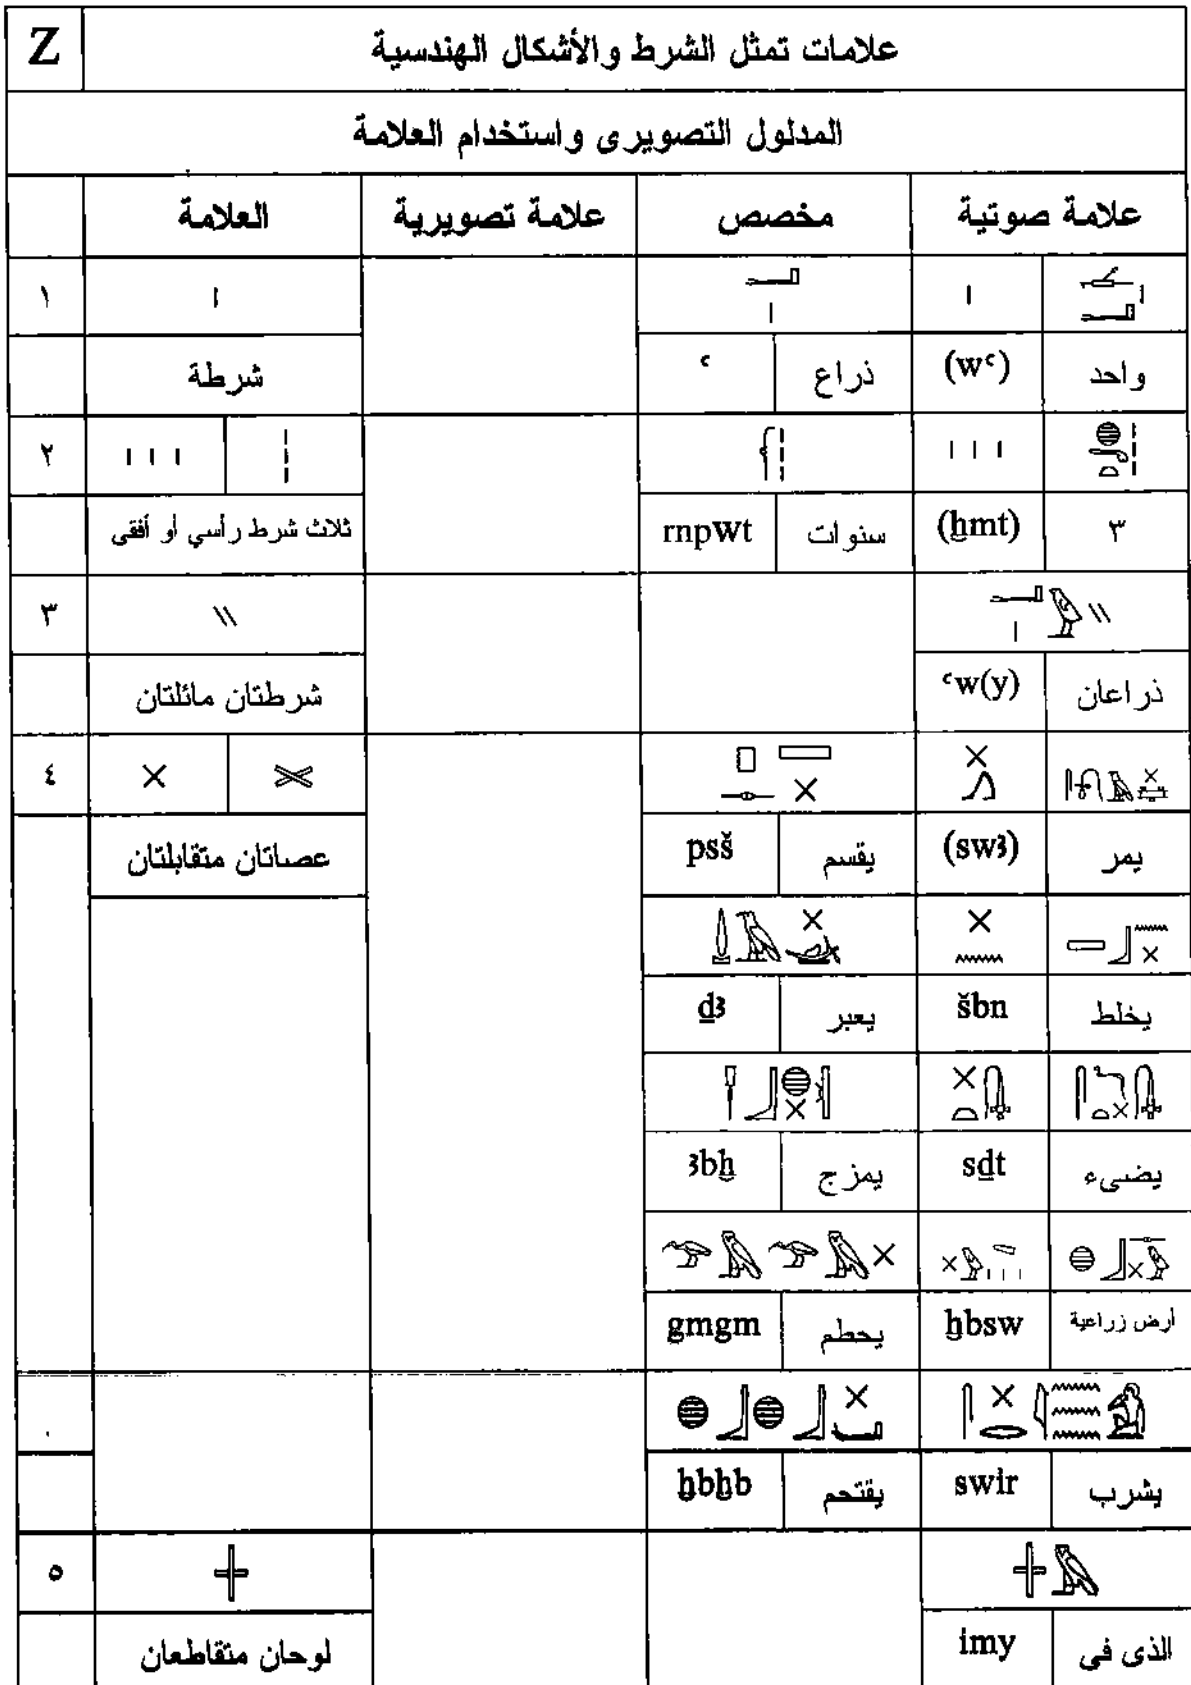 Z علامات تمثل الشرط والأشكال الهندسية
المدلول التصويرى واستخدام العلامة
العلامة علامة تصويرية مخصص علامة صوتية
١
شرطة ʿ ذراع (wʿ) واحد
٢
ثلاث شرط رأسي أو أفقى rnpwt سنوات (ḫmt) ٣
٣
شرطتان مائلتان ʿw(y) ذراعان
٤
عصاتان متقابلتان psš يقسم (swȝ) يمر
ḏȝ يعبر šbn يخلط
ȝbḫ يمزج sḏt يضىء
gmgm يحطم ḫbsw أرض زراعية
ḫbḫb يقتحم swir يشرب
٥
لوحان متقاطعان imy الذى فى